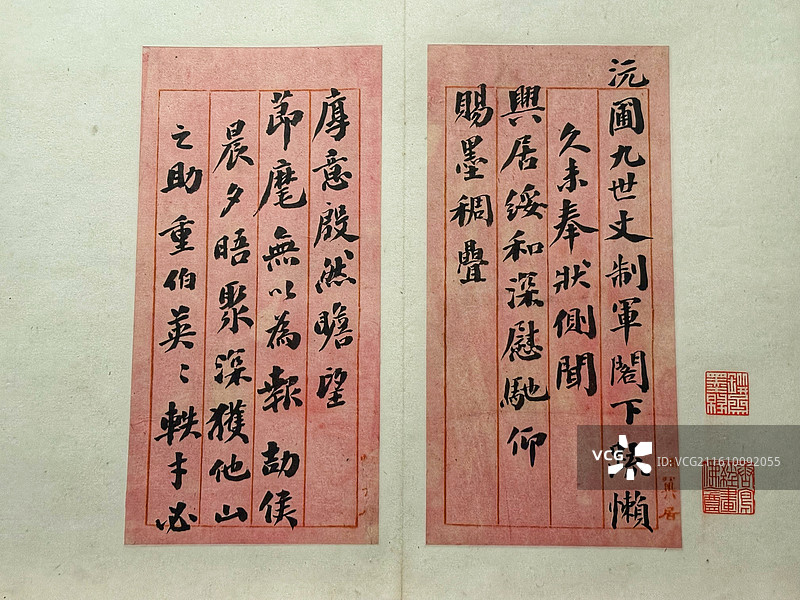 沅圃九世丈制軍閣下疎懶
久未奉狀側聞
興居綏和深慰馳仰
賜墨稠疊
厚意殷然瞻望
節麾無以為報劼侯
晨夕晤聚深獲他山
之助重伯英〻軼才必
VCG
ID:VCG211610092055